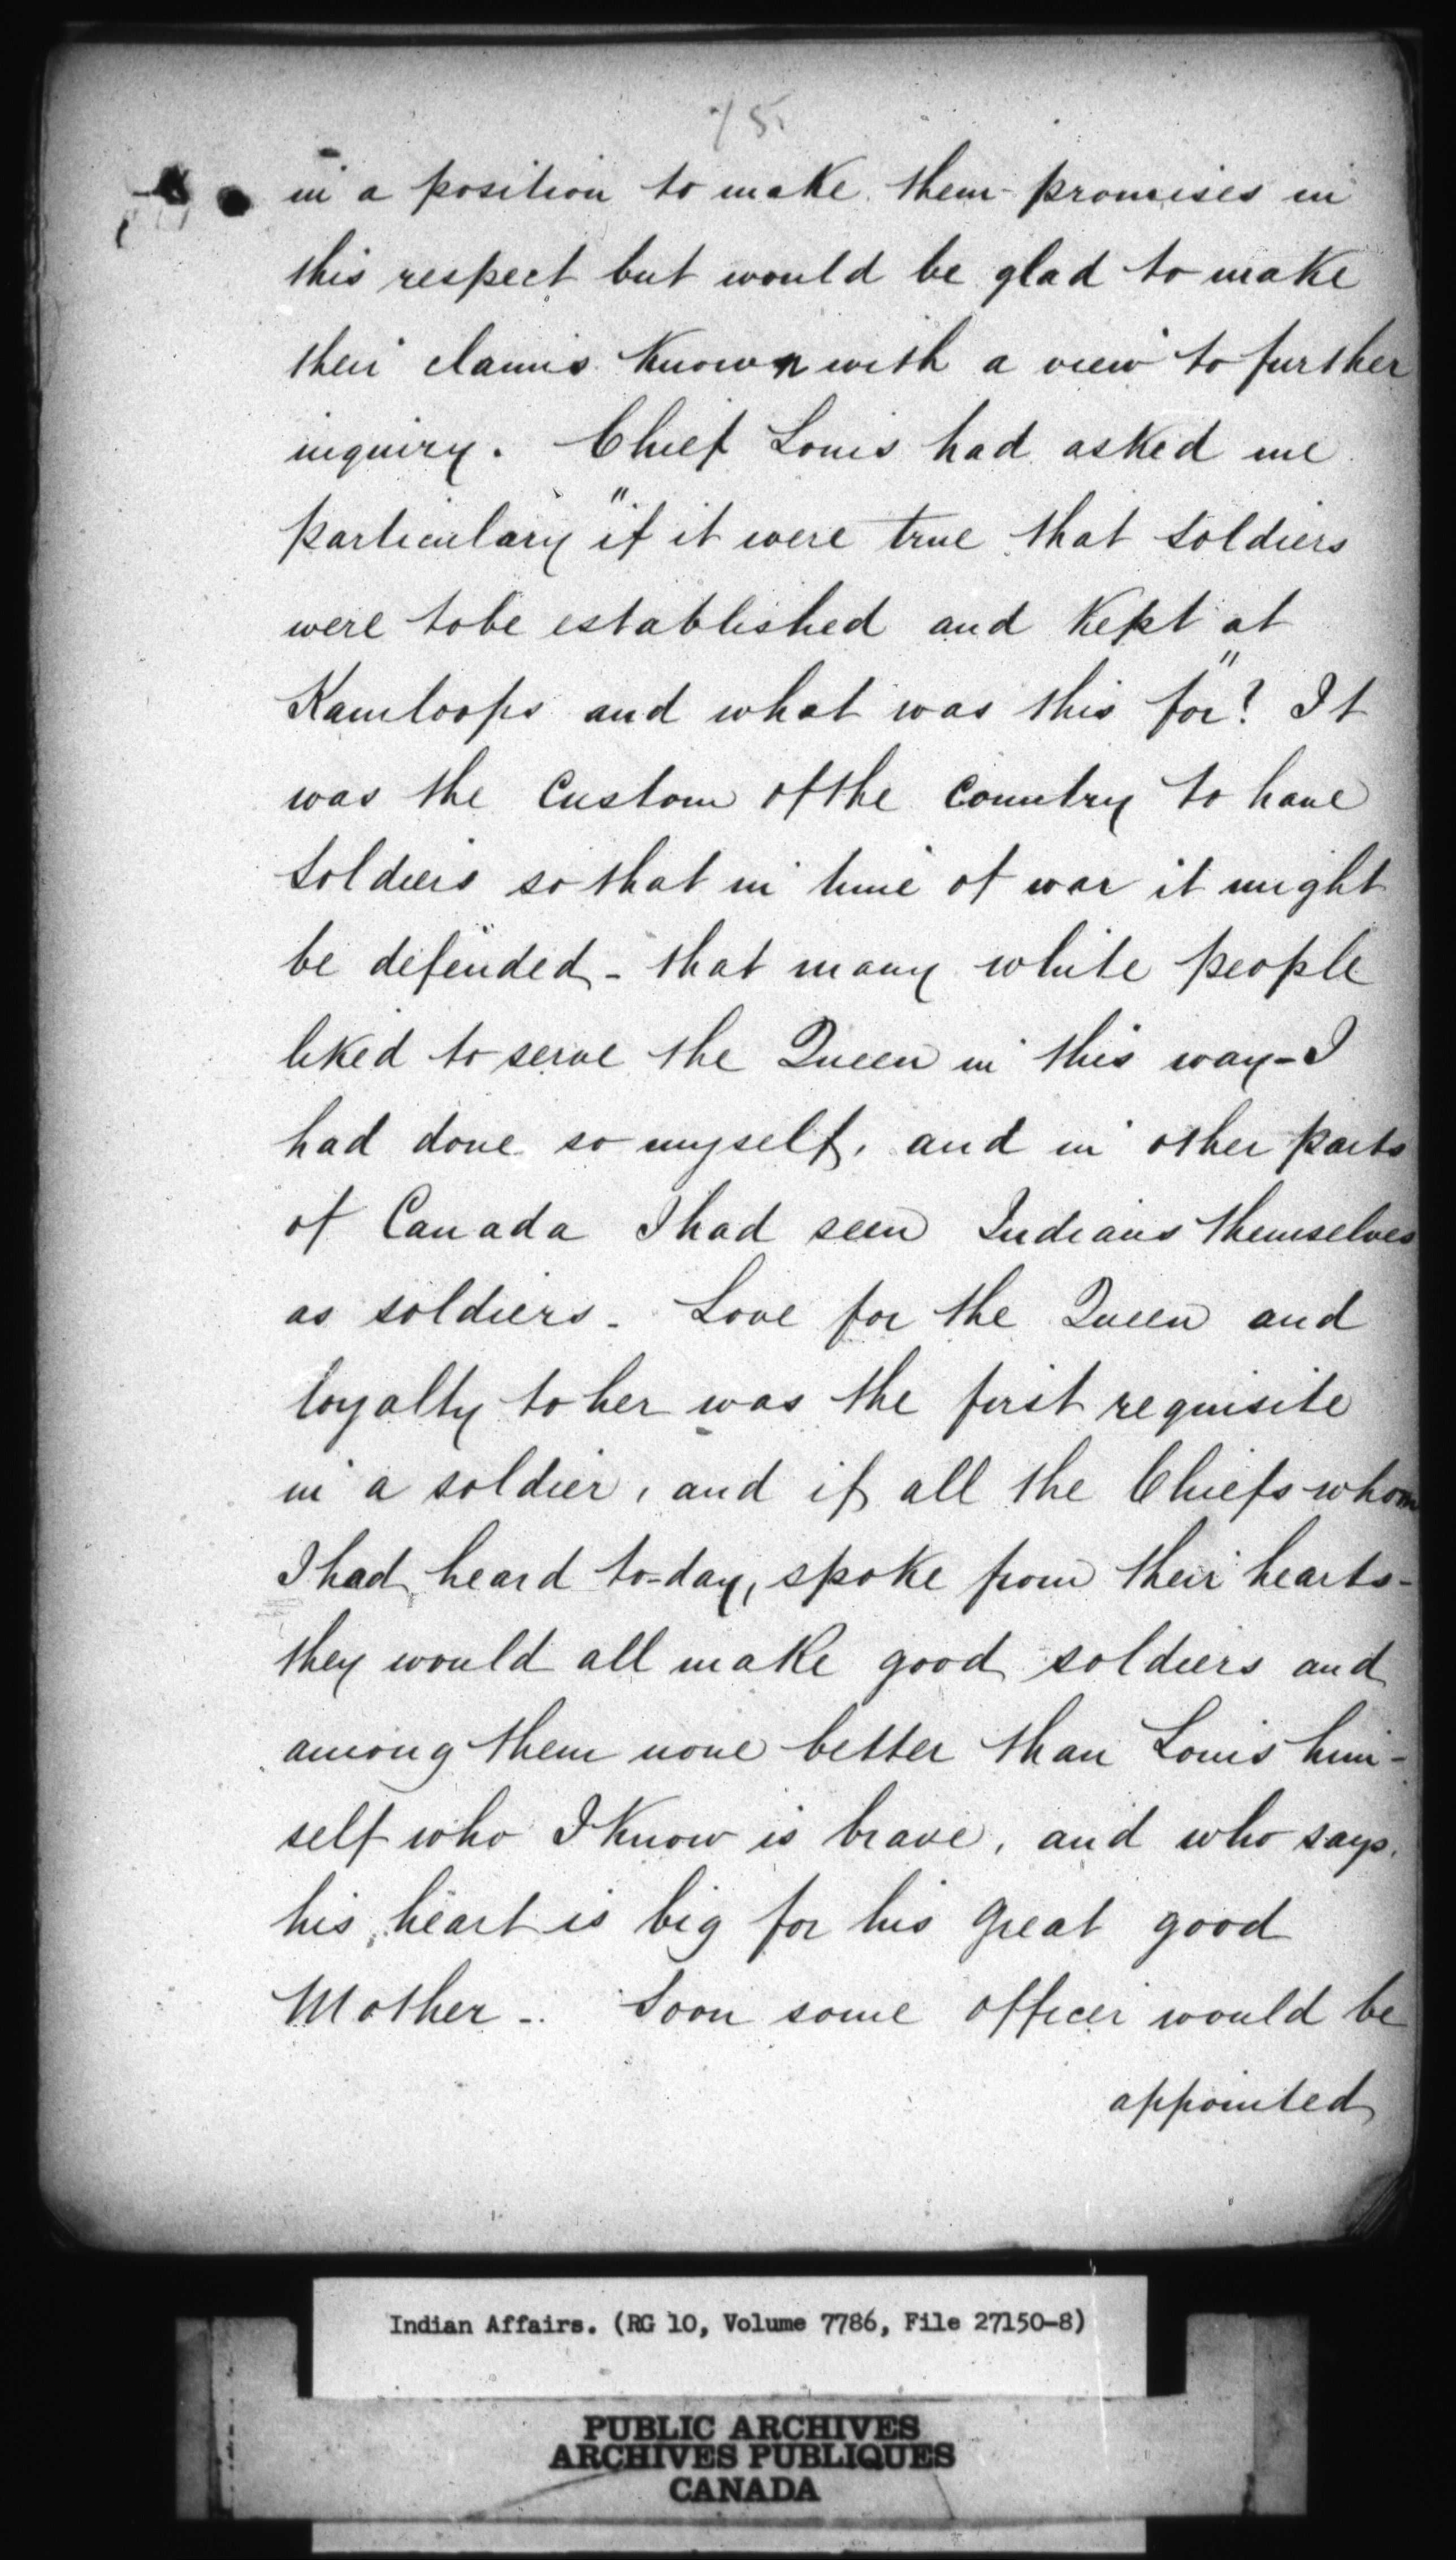 15
in a position to make them promises in
this respect but would be glad to make
their claims known with a view to further
inquiry. Chief Louis had asked me
particulary "if it were true that soldiers
were tobe established and kept at
Kamloops and what was this for"? It
was the custom of the country to have
soldiers so that in time of war it might
be defended - that many white people
liked to serve the Queen in this way - I
had done so myself, and in other parts
of Canada I had seen Indians themselves
as soldiers - Love for the Queen and
loyalty to her was the first requisite
in a soldier, and if all the Chiefs whom
I had heard to-day, spoke from their hearts -
they would all make good soldiers and
among them none better than Louis him-
self who I know is brave, and who says,
his heart is big for his great good
Mother - Soon some officer would be
appointed
Indian Affairs. (RG 10, Volume 7786, File 27150-8)
PUBLIC ARCHIVES
ARCHIVES PUBLIQUES
CANADA